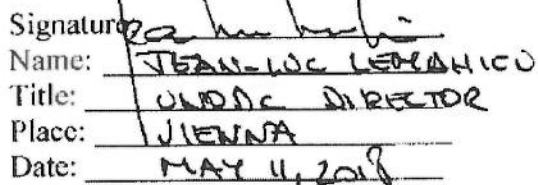 Signature
Name: JEAN-LUC LEMAHIEU
Title: UNODC DIRECTOR
Place: VIENNA
Date: MAY 11, 2018